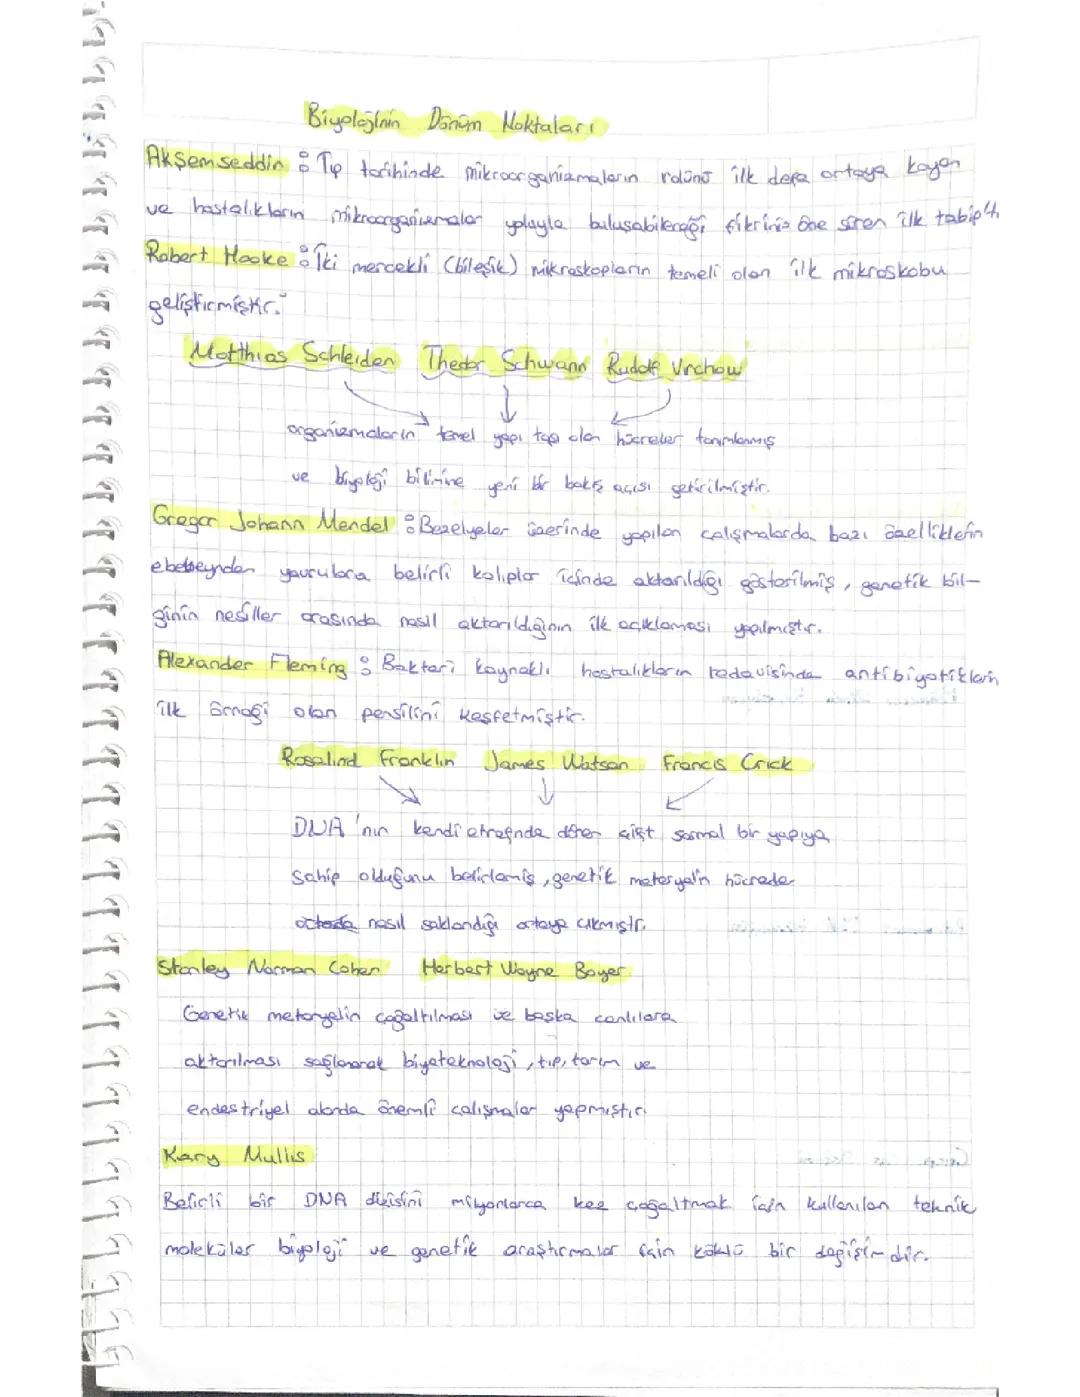 Biyolojinin Dönüm Noktaları
Akşemseddin : Tıp tarihinde mikroorganizmaların rolünü ilk defa ortaya koyan
ve hastalıkların mikroorganizmalar yoluyla buluşabileceği fikrini öne süren ilk tabip
Robert Hooke : İki mercekli (bileşik) mikroskopların temeli olan ilk mikroskobu
geliştirmiştir.
Matthias Schleiden Thedor Schwann Rudolf Vrchow
organizmaların temel yapı taşı olan hücreler tanımlanmış
ve biyoloji bilimine yeni bir bakış açısı getirilmiştir.
Gregor Johann Mendel : Bezelyeler üzerinde yapılan çalışmalarda bazı özelliklerin
ebebeynden yavrulara belirli kalıplar içinde aktarıldığı gösterilmiş, genetik bil-
ginin nesiller arasında nasıl aktarıldığının ilk açıklaması yapılmıştır.
Alexander Fleming : Bakteri kaynaklı hastalıkların tedavisinde antibiyotiklerin
ilk örneği olan pensilini keşfetmiştir.
Rosalind Franklin James Watson Francis Crick
DNA'nın kendi etrafında dönen çift sarmal bir yapıya
sahip olduğunu belirlemiş, genetik materyalin hücreder
nasıl saklandığı ortaya çıkmıştır.
Stanley Norman Cohen Herbert Wayne Boyer
Genetik materyalin çoğaltılması ve başka canlılara
aktarılması sağlanarak biyoteknoloji, tıp, tarım ve
endestriyel alanda önemli çalışmalar yapmıştır.
Kary Mullis
Belirli bir DNA dizisini milyonlarca kez çoğaltmak için kullanılan teknik
moleküler biyoloji ve genetik araştırmalar için köklü bir değişimdir.